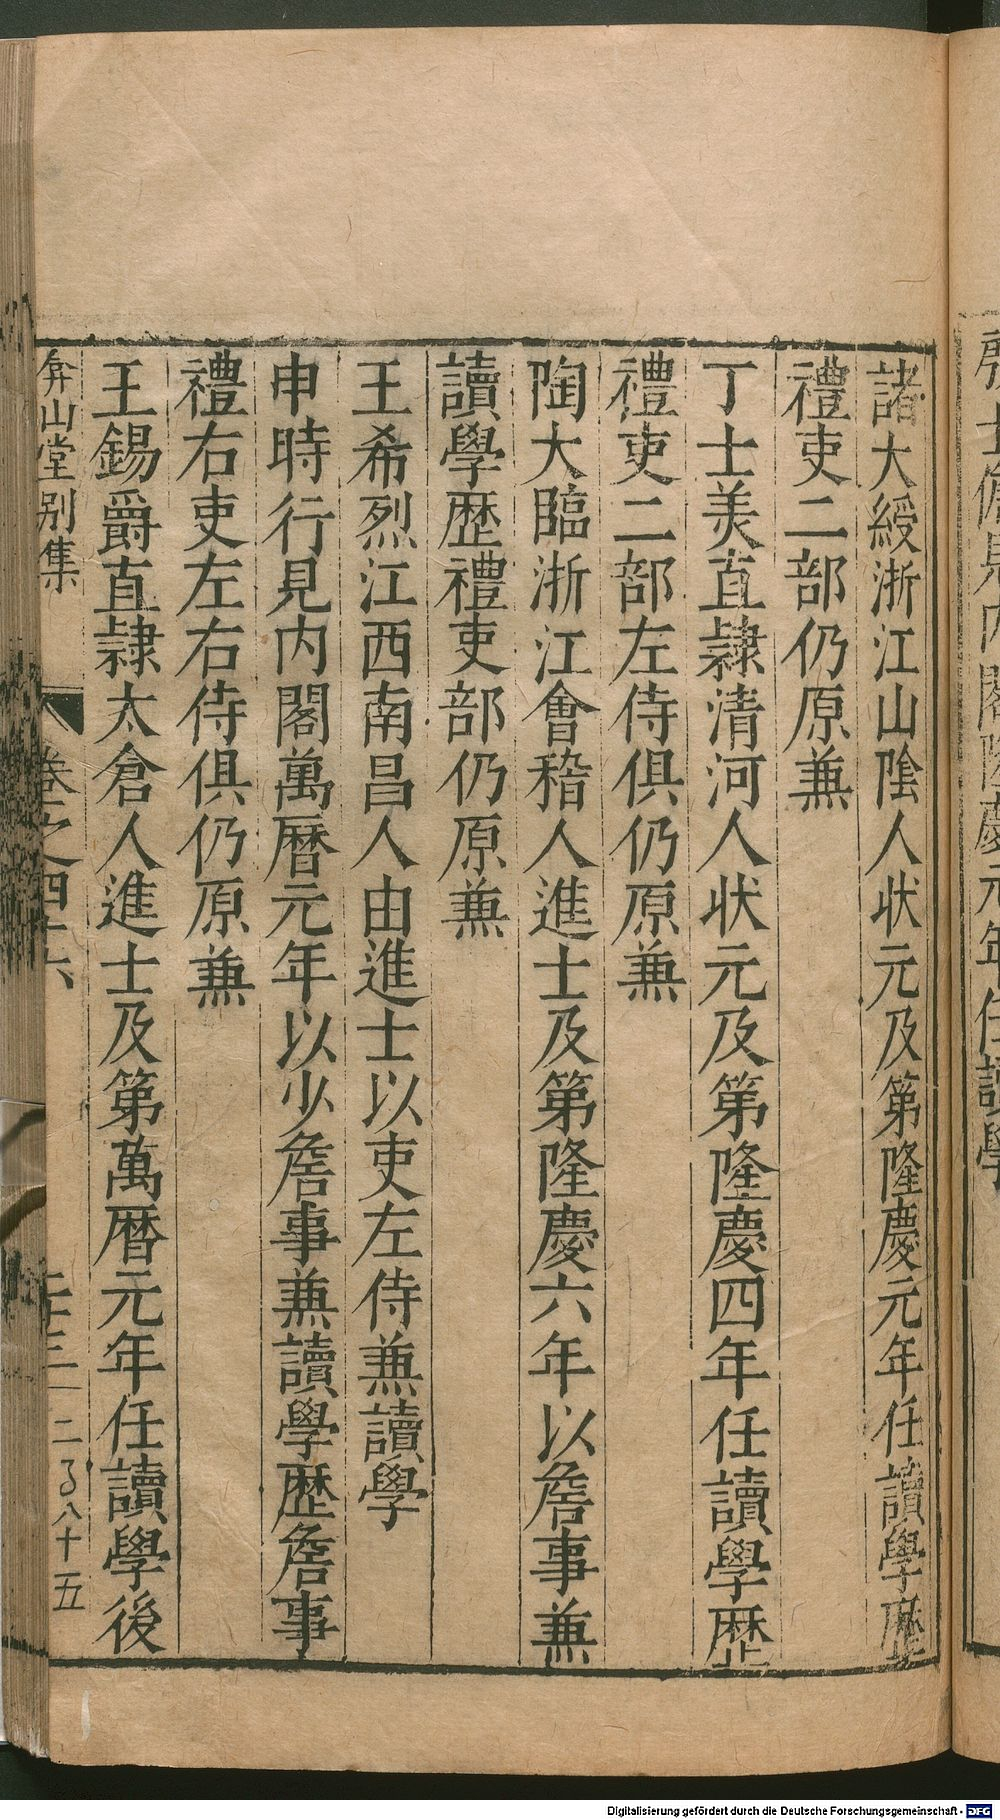 諸大綬浙江山陰人状元及第隆慶元年任讀學歷
禮吏二部仍原兼
丁士美直隷清河人状元及第隆慶四年任讀學歷
禮吏二部左侍俱仍原兼
陶大臨浙江會稽人進士及第隆慶六年以詹事兼
讀學歷禮吏部仍原兼
王希烈江西南昌人由進士以吏左侍兼讀學
申時行見内閣萬曆元年以少詹事兼讀學歷詹事
禮右吏左右侍俱仍原兼
王錫爵直隷太倉人進士及第萬曆元年任讀學後
弇山堂別集
卷之四十六
二十三
Digitalisierung gefördert durch die Deutsche Forschungsgemeinschaft - DFG